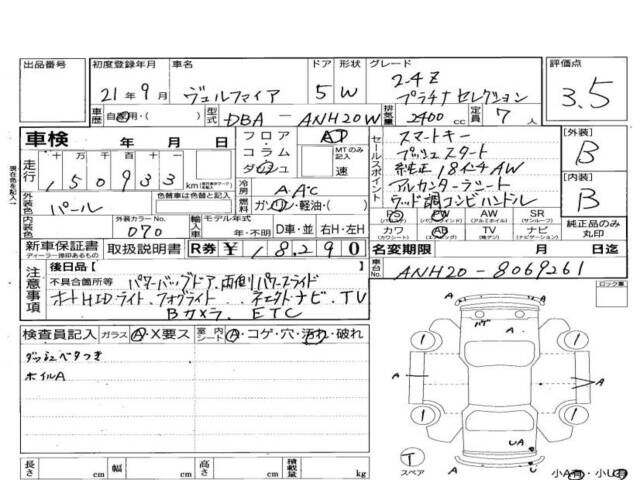 出品番号
初度登録年月
21年9月
車名
ヴェルファイア
ドア 形状
5 W
グレード
2.4Z
プラチナセレクション
評価点
3.5
車歴 自家用・( )
型式 DBA - ANH20W
排気量 2400 cc
定員 7 人
車検 年 月 日
フロア
コラム
ダッシュ
AT
MTのみ記入
速
セールスポイント
スマートキー
プッシュスタート
純正18インチAW
アルカンターラシート
ウッド調コンビハンドル
[外装]
B
[内装]
B
走行 十万 万 千 百 十 一
150933 km
冷房 A.AC
燃料 ガソリン・軽油・( )
外装色 パール
色替車は色替前の色
内装色
外装カラーNo. 070
輸入車 モデル年式
年・不明 D車・並 右H・左H
PS AW PW SR
カワ AB TV ナビ
純正品のみ丸印
新車保証書
ディーラー捺印あるもの
取扱説明書
R券 ¥18290
名変期限 月 日迄
車台No. ANH20-8069261
注意事項
後日品( )
不具合箇所等
パワーバックドア、両側パワースライド
オートHIDライト、フォグライト、コネクトナビ、TV
Bカメラ、ETC
ロック車
検査員記入 ガラス A・X要ス 室内シート A・コゲ・穴・汚れ・破れ
ダッシュベタつき
ホイルA
A
A
A
1
1
1
1
UA
U
T
スペア
小A有・小U有
長さ cm 幅 cm 高さ cm 積載量 kg
現在色を記入